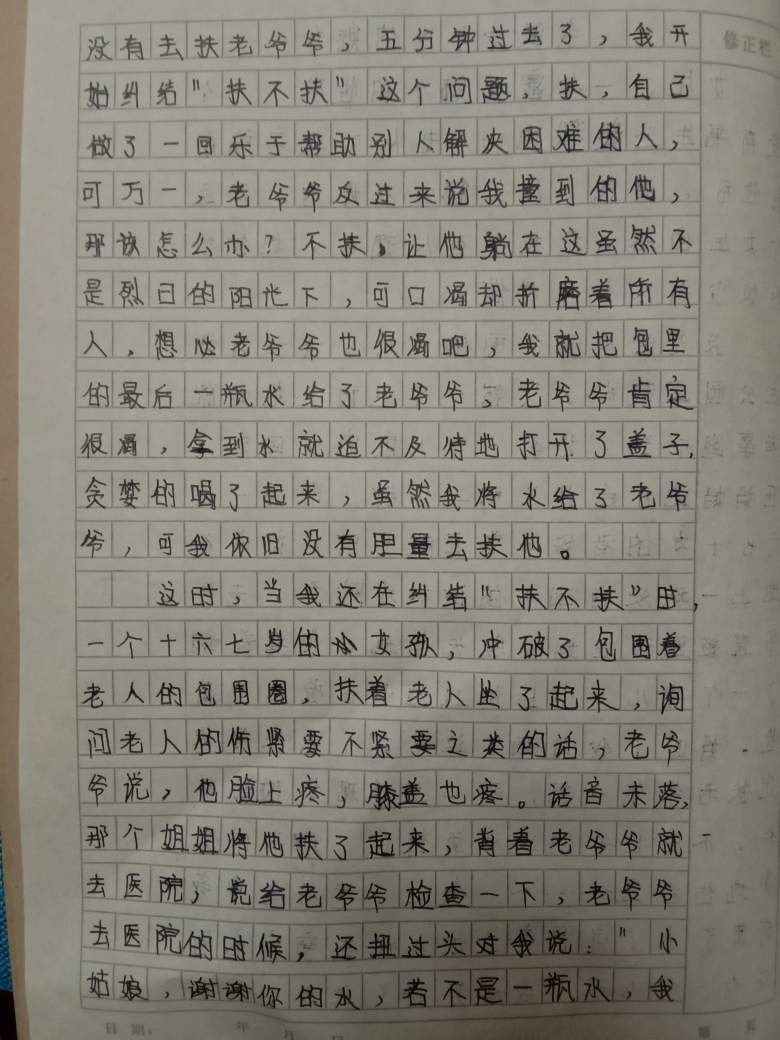 没有去扶老爷爷，五分钟过去了，我开
修正栏
始纠结"扶不扶"这个问题，扶，自己
做了一回乐于帮助别人解决困难的人，
可万一，老爷爷反过来说我撞到的他，
那该怎么办？不扶，让他躺在这虽然不
是烈日的阳光下，可口渴却折磨着所有
人，想必老爷爷也很渴吧，我就把包里
的最后一瓶水给了老爷爷，老爷爷肯定
很渴，拿到水就迫不及待地打开了盖子，
贪婪的喝了起来，虽然我将水给了老爷
爷，可我依旧没有胆量去扶他。
这时，当我还在纠结"扶不扶"时，
一个十六七岁的小女孩，冲破了包围着
老人的包围圈，扶着老人坐了起来，询
问老人的伤紧要不紧要之类的话，老爷
爷说，他脸上疼，膝盖也疼。话音未落，
那个姐姐将他扶了起来，背着老爷爷就
去医院，说给老爷爷检查一下，老爷爷
去医院的时候，还扭过头对我说："小
姑娘，谢谢你的水，若不是一瓶水，我
日期： 年 月 日 第 页